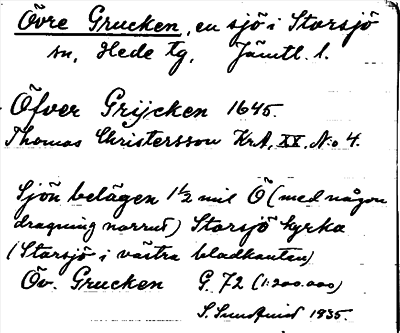 Övre Grucken, en sjö i Storsjö
sn, Hede tg, Jämtl. l.
Öfver Grijcken 1645.
Thomas Christersson KrA, XX, N:o 4.
Sjön belägen 1 1/2 mil Ö (med någon
dragning norrut) Storsjö kyrka
(Storsjö i västra bladkanten)
Öv. Grucken G. 72 (1:200.000)
S. Sundqvist 1935.